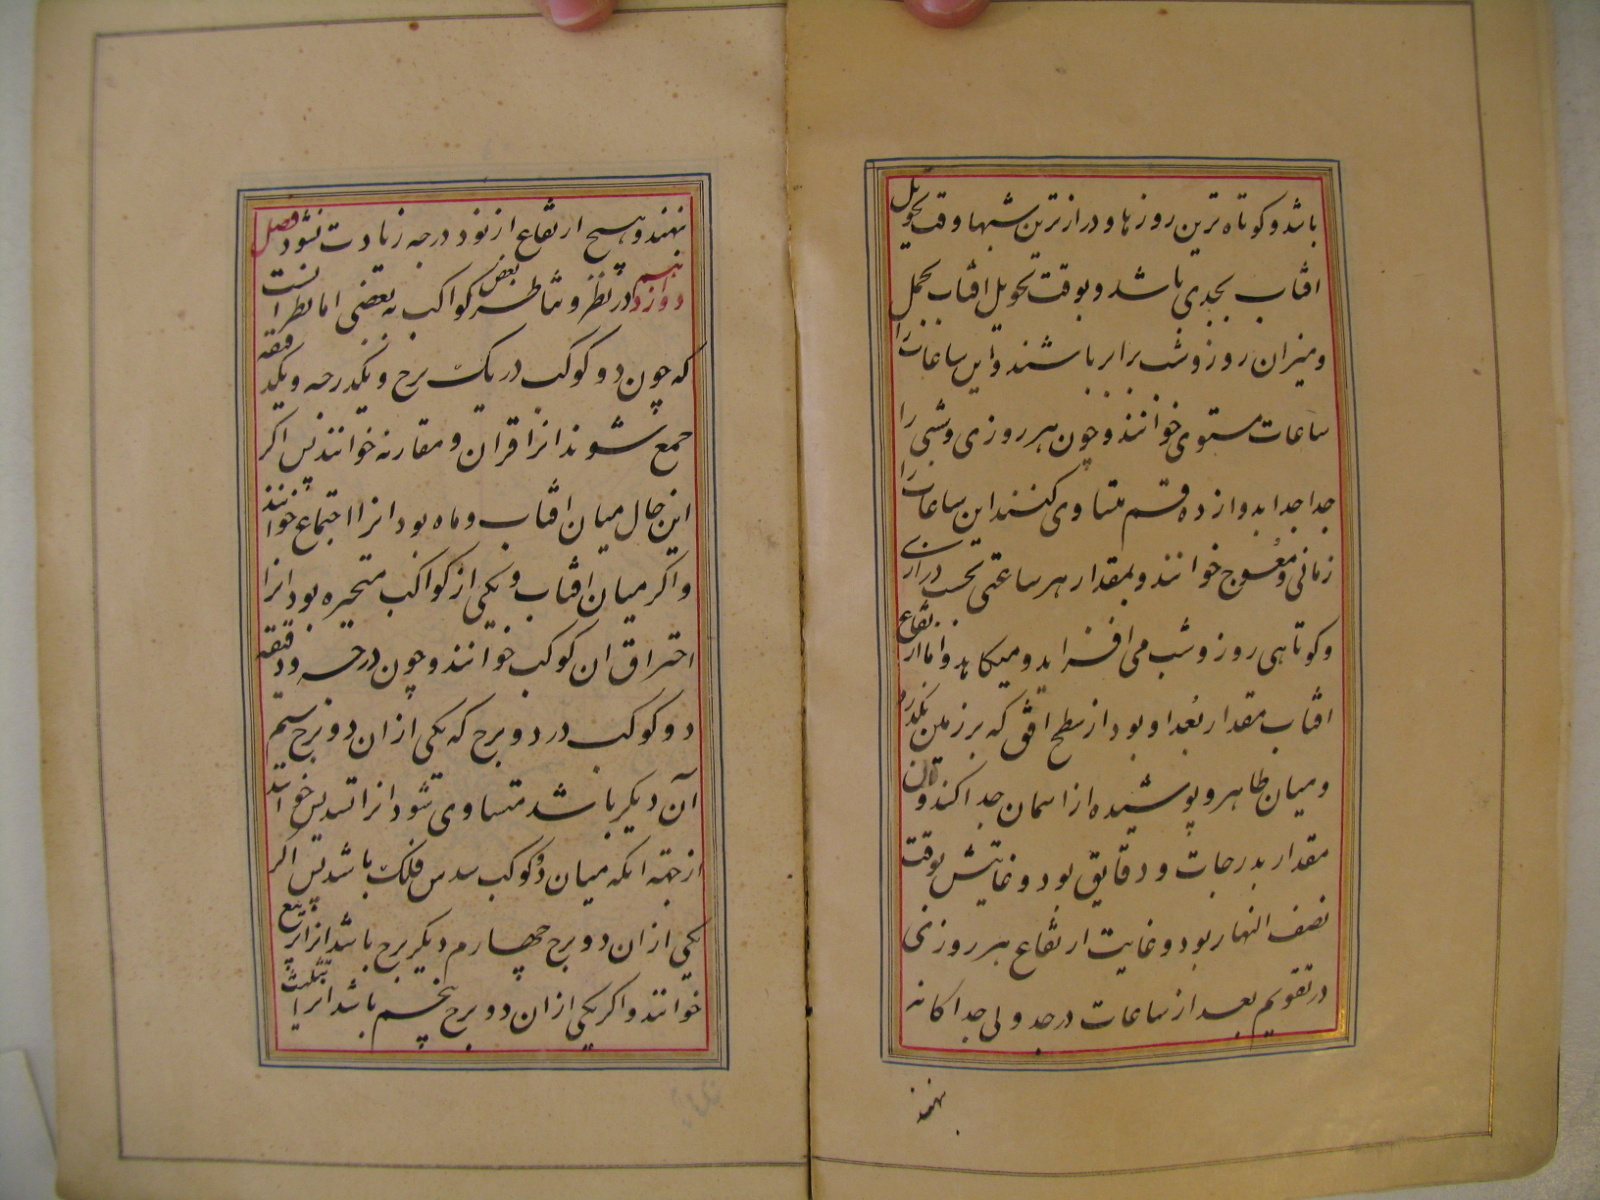 باشد و کوتاه ترین روزها و درازترین شبها وقت تحویل
افتاب بجدی باشد و بوقت تحویل افتاب بحمل
و میزان روز و شب برابر باشند و این ساعات را
ساعات مستوی خوانند و چون هر روزی و شبی را
جدا جدا بدوازده قسم متساوی کنند این ساعات را
زمانی و معوج خوانند و مقدار هر ساعتی بحسب درازی
و کوتاهی روز و شب می افزاید و میکاهد و اما ارتفاع
افتاب مقدار بُعد او بود از سطح افق که بر زمین بگذرد
و میان ظاهر و پوشیده از اسمان جدا کند و آن
مقدار بدرجات و دقایق بود و غایتش بوقت
نصف النهار بود و غایت ارتفاع هر روزی
در تقویم بعد از ساعات در جدولی جداکانه
نهند
نهند و هیچ ارتفاع از نود درجه زیادت نشود فصل
دوازدهم در نظر و تناظر کواکب بعضی به بعضی اما نظر انست
که چون دو کوکب در یک برج و یکدرجه و یکدقیقه
جمع شوند انرا قران و مقارنه خوانند پس اکر
این حال میان افتاب و ماه بود انرا اجتماع خوانند
و اکر میان افتاب و یکی از کواکب متحیره بود انرا
احتراق ان کوکب خوانند و چون درجه و دقیقه
دو کوکب در دو برج که یکی از ان دو برج سیم
آن دیکر باشد متساوی شود انرا تسدیس خوانند
از جهة انکه میان دو کوکب سدس فلک باشد پس اکر
یکی از ان دو برج چهارم دیکر برج باشد انرا تربیع
خوانند و اکر یکی از ان دو برج پنجم باشد انرا تثلیث